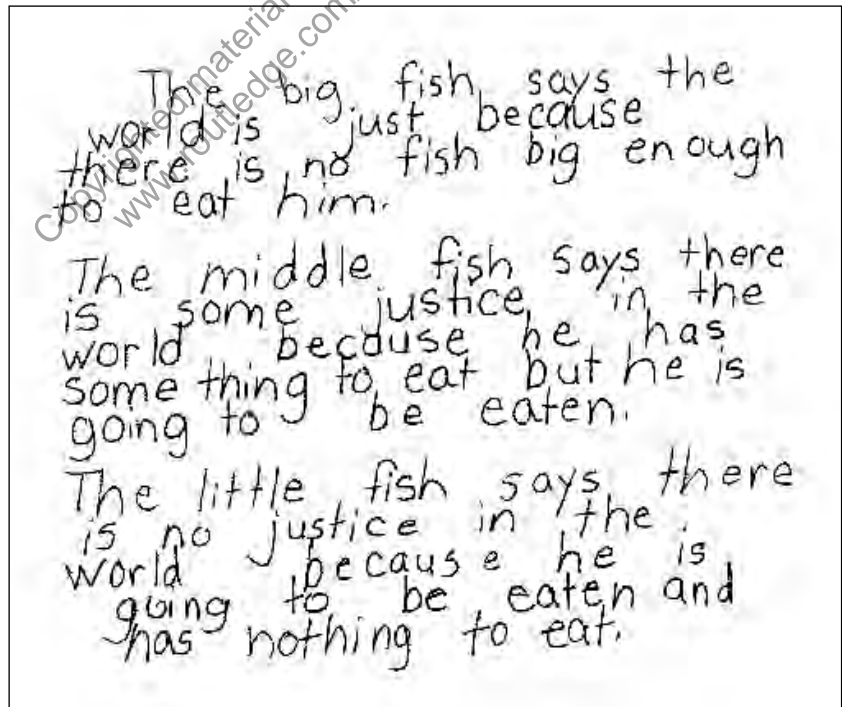 Copyrighted material
www.routledge.com
The big fish says the
world is just because
there is no fish big enough
to eat him.
The middle fish says there
is some justice in the
world because he has
something to eat but he is
going to be eaten.
The little fish says there
is no justice in the
world because he is
going to be eaten and
has nothing to eat.